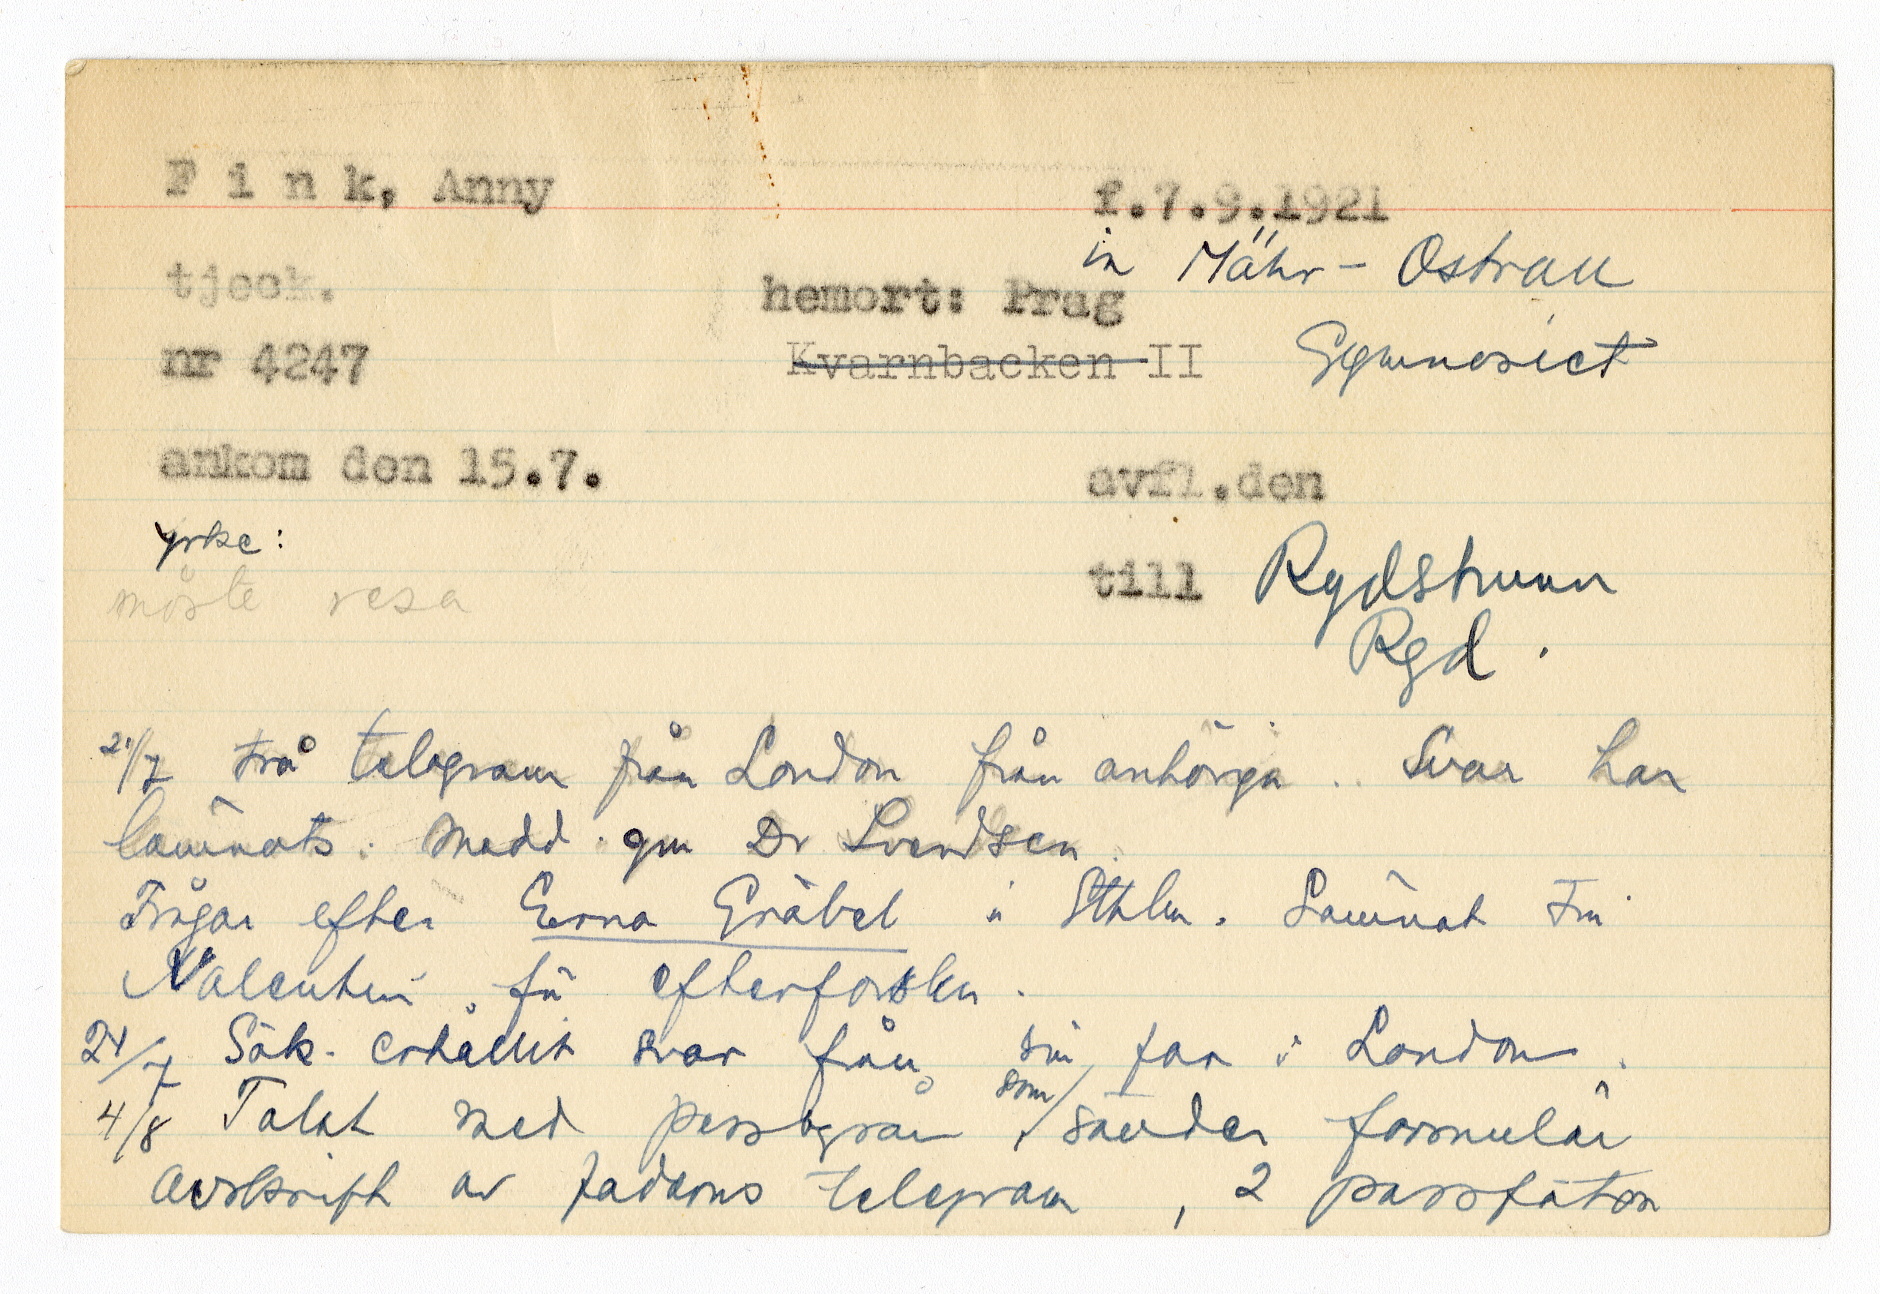 F i n k, Anny
f.7.9.1921
in Mähr-Ostrau
tjeck.
hemort: Prag
nr 4247
Kvarnbacken II Gymnasiet
ankom den 15.7.
avfl.den
yrke:
till Rydsbrunn
måste resa
Ryd.
21/7 Två telegram från London från anhöriga. Svar har
lämnats. Medd. gm Dr Svendsen.
Frågar efter Erna Gräbel i Sthlm. Lämnat Frk
Valentin för efterforskn.
24/7 Sök. erhållit svar från sin far i London.
4/8 Talat med passbyrån, som sänder formulär
avskrift av faderns telegram, 2 passfoton